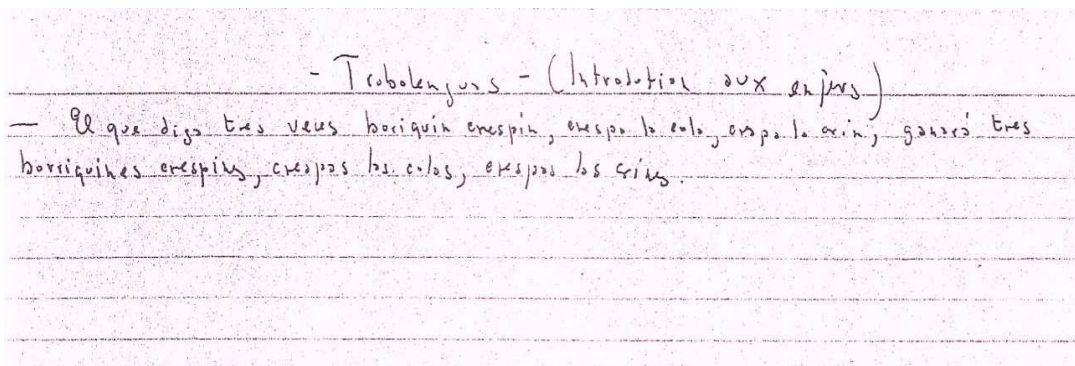 - Trabalenguas - (Introdution aux enfers)
- El que diga tres veces boriquin crespin, crespa la cola, crespa la crin, ganará tres
borriquines crespines, crespas las colas, crespas las crines.